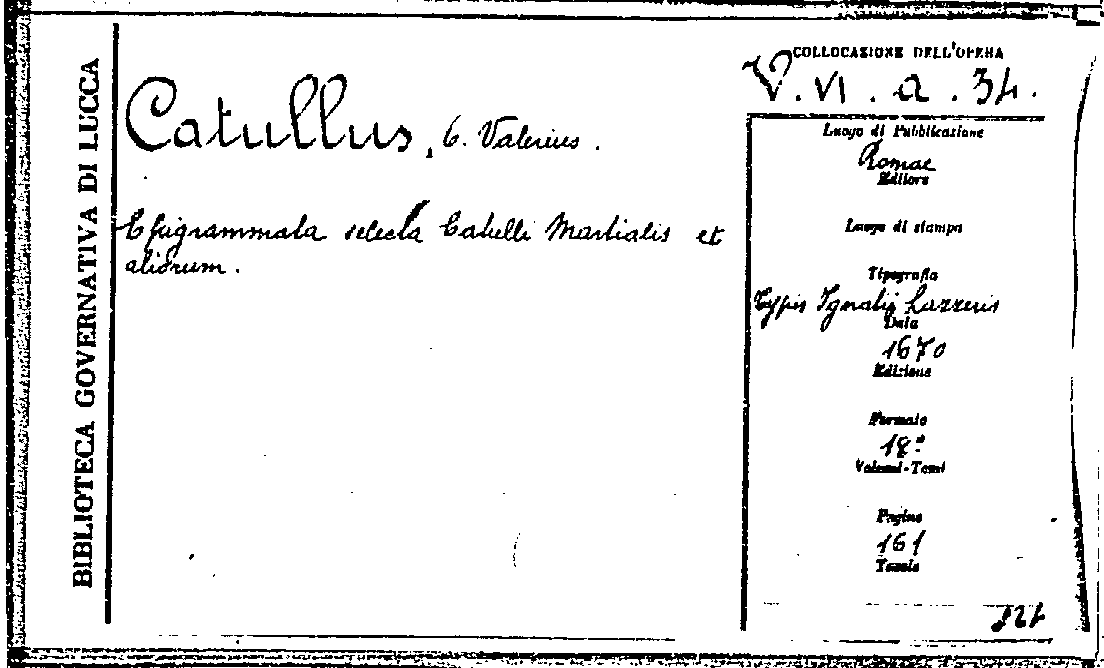 BIBLIOTECA GOVERNATIVA DI LUCCA
Catullus, C. Valerius.
Epigrammata selecta Catulli Martialis et
aliorum.
COLLOCAZIONE DELL'OPERA
V. VI. a. 34.
Luogo di Pubblicazione
Romae
Editore
Luogo di stampa
Tipografia
Typis Ignatij Lazzeris
Data
1670
Edizione
Formato
18º
Volumi-Tomi
Pagine
161
Tavole